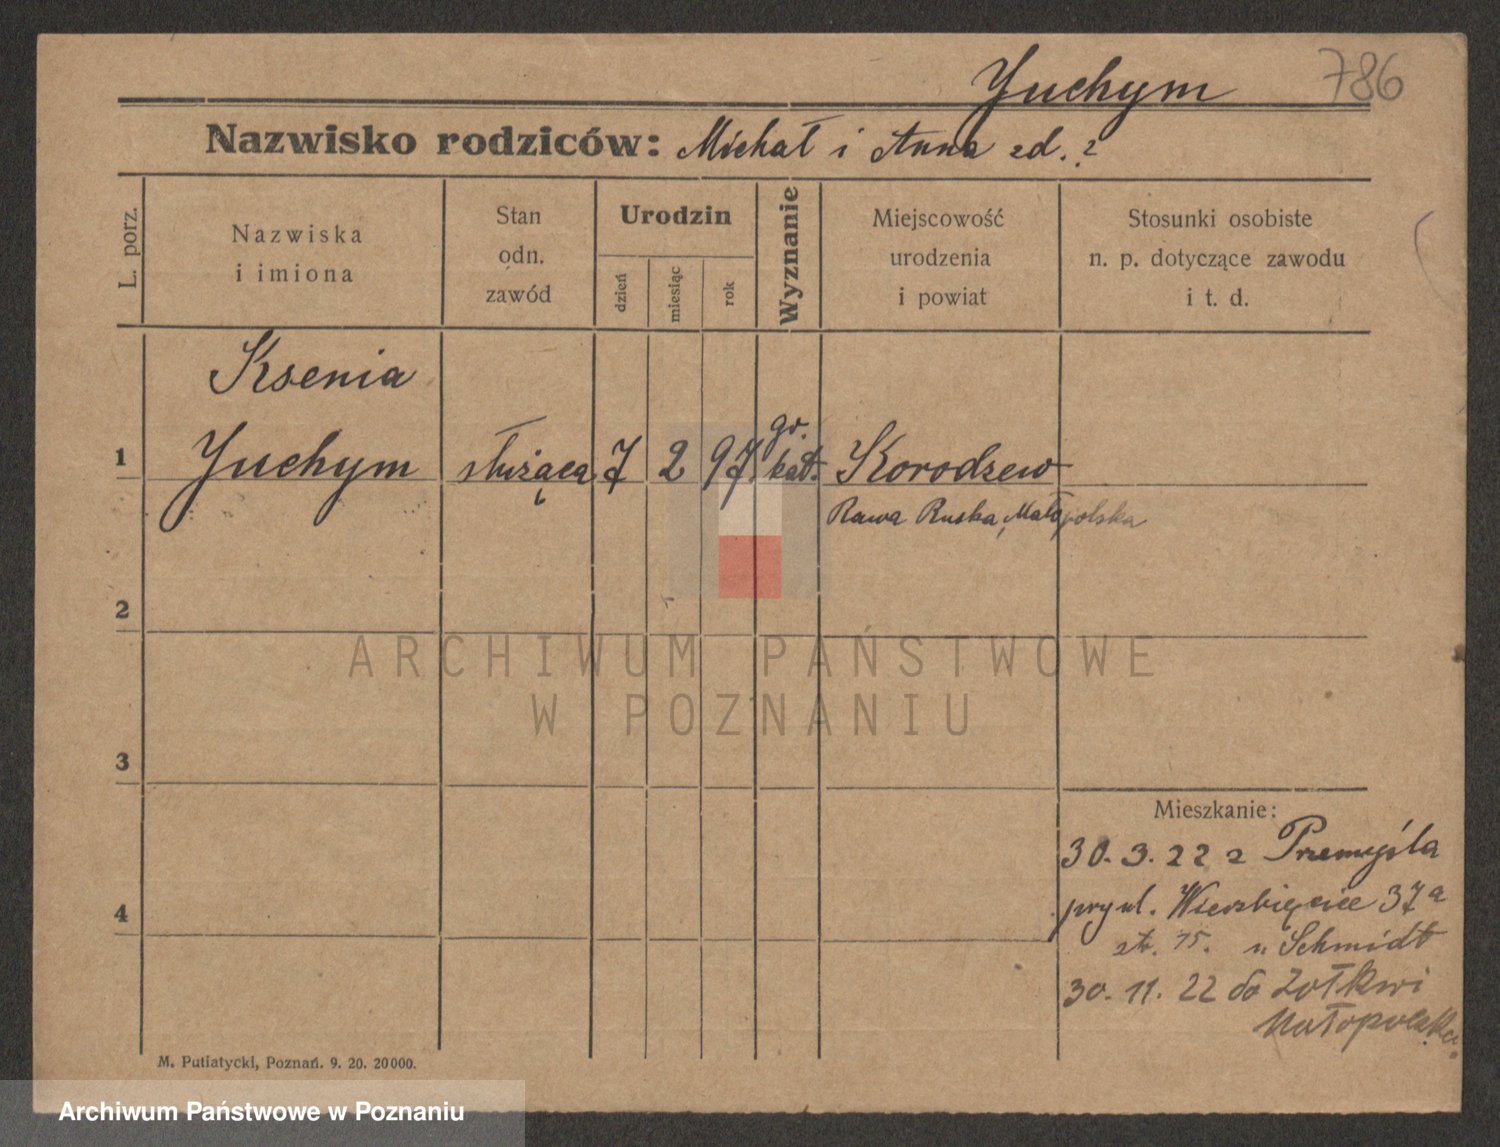 Yuchym
786
Nazwisko rodziców: Michał i Anna zd. ?
L. porz.
Nazwiska
i imiona
Stan
odn.
zawód
Urodzin
dzień
miesiąc
rok
Wyznanie
Miejscowość
urodzenia
i powiat
Stosunki osobiste
n. p. dotyczące zawodu
i t. d.
Ksenia
1 Yuchym służąca 7 2 97. gr. kat. Korodzew
Rawa Ruska, Małopolska
2
3
4
Mieszkanie:
30. 3. 22 z Przemyśla
przy ul. Wierzbięcice 37a
15. u Schmidt
30. 11. 22 do Żołkwi
Małopolska.
M. Putiatycki, Poznań. 9. 20. 20000.
ARCHIWUM PAŃSTWOWE
W POZNANIU
Archiwum Państwowe w Poznaniu